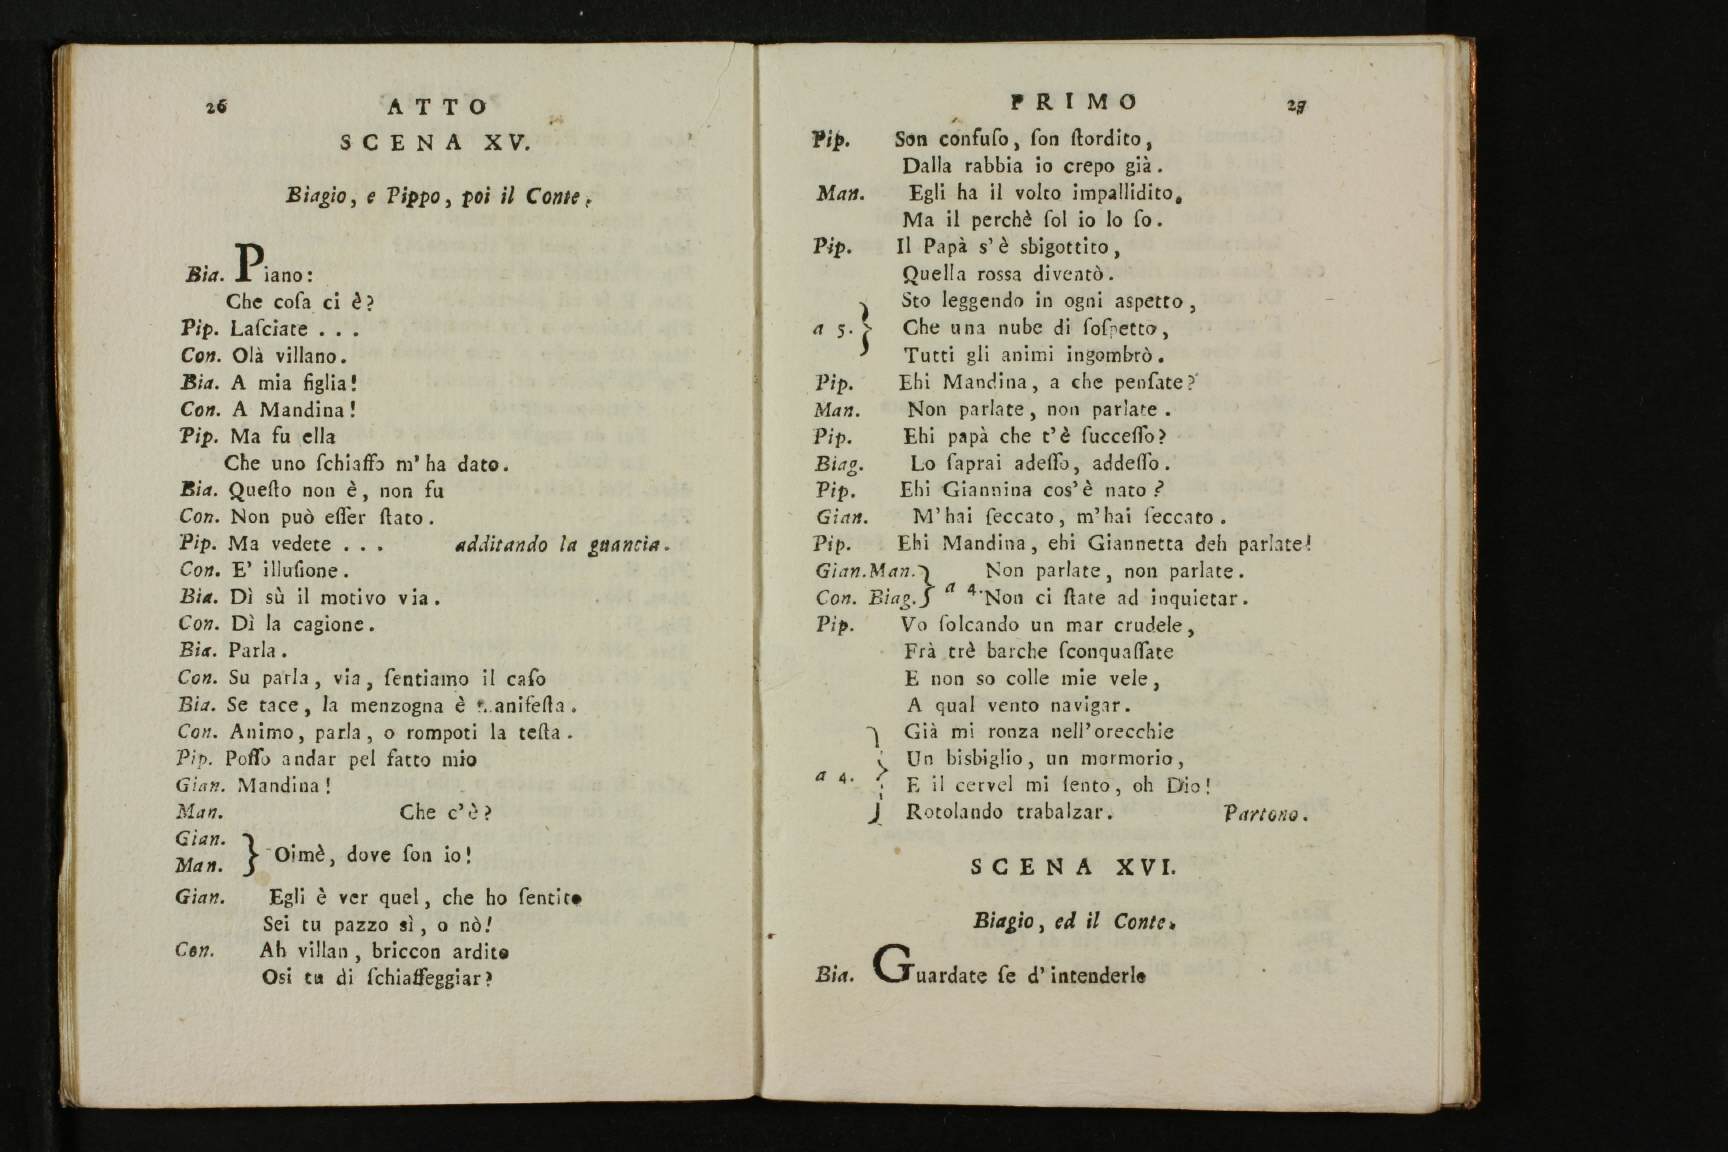 26 ATTO
SCENA XV.
Biagio, e Pippo, poi il Conte.
Bia. Piano:
Che coſa ci è?
Pip. Laſciate . . .
Con. Olà villano.
Bia. A mia figlia!
Con. A Mandina!
Pip. Ma fu ella
Che uno ſchiaffo m' ha dato.
Bia. Queſto non è, non fu
Con. Non può eſſer ſtato.
Pip. Ma vedete . . . additando la guancia.
Con. E' illuſione.
Bia. Dì sù il motivo via.
Con. Dì la cagione.
Bia. Parla.
Con. Su parla, via, ſentiamo il caſo
Bia. Se tace, la menzogna è manifeſta.
Con. Animo, parla, o rompoti la teſta.
Pip. Poſſo andar pel fatto mio
Gian. Mandina!
Man. Che c' è?
Gian.
Man. } Oimè, dove ſon io!
Gian. Egli è ver quel, che ho ſentito
Sei tu pazzo sì, o nò!
Con. Ah villan, briccon ardito
Osi tu di ſchiaffeggiar?
PRIMO 27
Pip. Son confuſo, ſon ſtordito,
Dalla rabbia io crepo già.
Man. Egli ha il volto impallidito,
Ma il perchè ſol io lo ſo.
Pip. Il Papà s' è sbigottito,
Quella rossa diventò.
Sto leggendo in ogni aspetto,
a 5. } Che una nube di ſoſpetto,
Tutti gli animi ingombrò.
Pip. Ehi Mandina, a che penſate?
Man. Non parlate, non parlate.
Pip. Ehi papà che t' è ſucceſſo?
Biag. Lo ſaprai adeſſo, addeſſo.
Pip. Ehi Giannina cos' è nato?
Gian. M' hai ſeccato, m' hai ſeccato.
Pip. Ehi Mandina, ehi Giannetta deh parlate!
Gian. Man. } a 4. Non parlate, non parlate.
Con. Biag. Non ci ſtate ad inquietar.
Pip. Vo ſolcando un mar crudele,
Frà trè barche ſconquaſſate
E non so colle mie vele,
A qual vento navigar.
Già mi ronza nell' orecchie
Un bisbiglio, un mormorio,
a 4. } E il cervel mi ſento, oh Dio!
Rotolando trabalzar. Partono.
SCENA XVI.
Biagio, ed il Conte.
Bia. Guardate ſe d' intenderlo